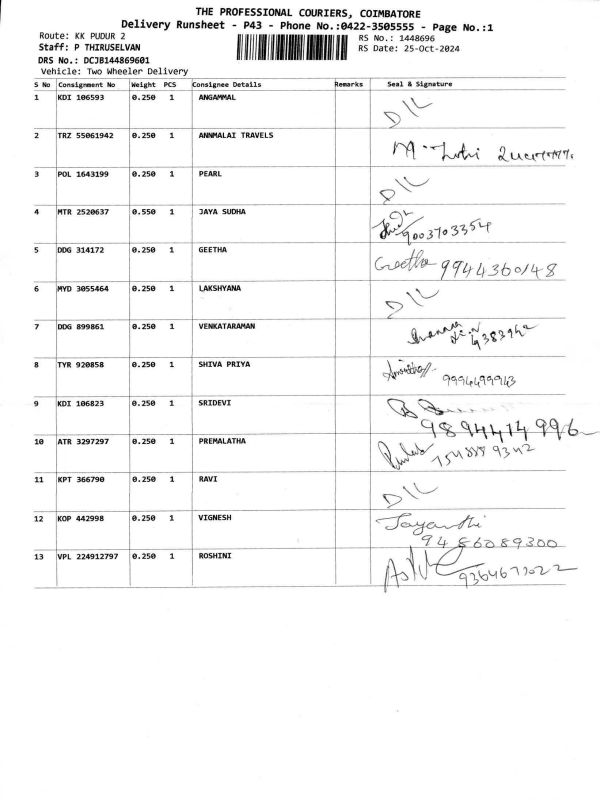 THE PROFESSIONAL COURIERS, COIMBATORE
Delivery Runsheet - P43 - Phone No.:0422-3505555 - Page No.:1
Route: KK PUDUR 2 RS No.: 1448696
Staff: P THIRUSELVAN RS Date: 25-Oct-2024
DRS No.: DCJB144869601
Vehicle: Two Wheeler Delivery
S No Consignment No Weight PCS Consignee Details Remarks Seal & Signature
1 KDI 106593 0.250 1 ANGAMMAL D/L
2 TRZ 55061942 0.250 1 ANNMALAI TRAVELS
3 POL 1643199 0.250 1 PEARL D/L
4 MTR 2520637 0.550 1 JAYA SUDHA 9003703354
5 DDG 314172 0.250 1 GEETHA Geetha 9944360148
6 MYD 3055464 0.250 1 LAKSHYANA D/L
7 DDG 899861 0.250 1 VENKATARAMAN
8 TYR 920858 0.250 1 SHIVA PRIYA 9994499943
9 KDI 106823 0.250 1 SRIDEVI 9894414996
10 ATR 3297297 0.250 1 PREMALATHA
11 KPT 366790 0.250 1 RAVI D/L
12 KOP 442998 0.250 1 VIGNESH Jayanthi
9486089300
13 VPL 224912797 0.250 1 ROSHINI